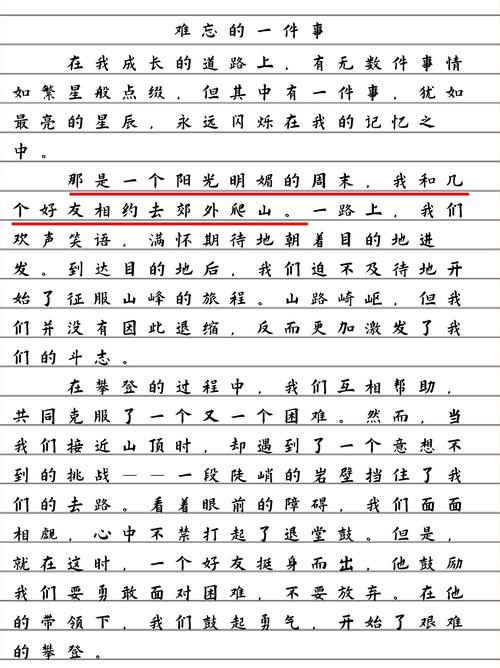 难忘的一件事
在我成长的道路上，有无数件事情
如繁星般点缀，但其中有一件事，犹如
最亮的星辰，永远闪烁在我的记忆之
中。
那是一个阳光明媚的周末，我和几
个好友相约去郊外爬山。一路上，我们
欢声笑语，满怀期待地朝着目的地进
发。到达目的地后，我们迫不及待地开
始了征服山峰的旅程。山路崎岖，但我
们并没有因此退缩，反而更加激发了我
们的斗志。
在攀登的过程中，我们互相帮助，
共同克服了一个又一个困难。然而，当
我们接近山顶时，却遇到了一个意想不
到的挑战——一段陡峭的岩壁挡住了我
们的去路。看着眼前的障碍，我们面面
相觑，心中不禁打起了退堂鼓。但是，
就在这时，一个好友挺身而出，他鼓励
我们要勇敢面对困难，不要放弃。在他
的带领下，我们鼓起勇气，开始了艰难
的攀登。